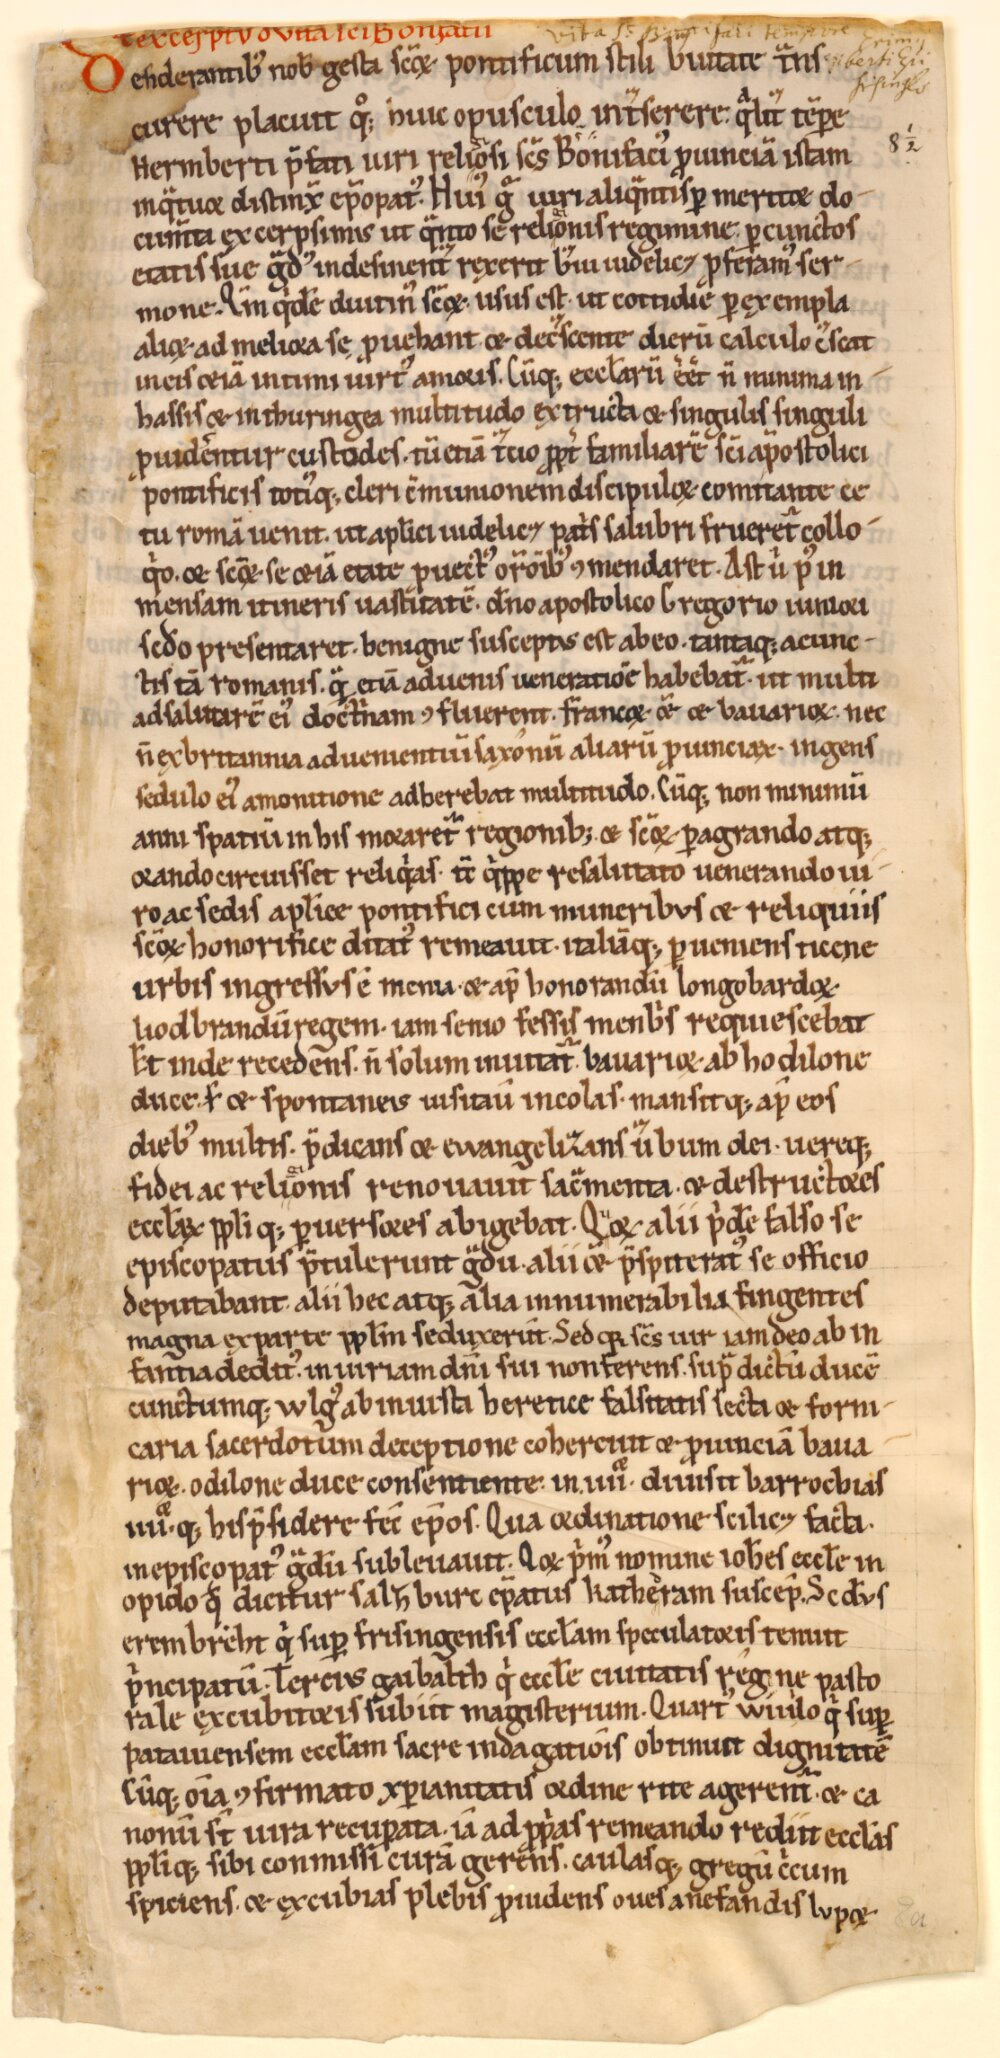 excerptu o vita sci Bonifatii
Desiderantib' nob gesta scōꝝ pontificum stili breuitate trans
currere placuit qđ huic opusculo interserere qualit tēpe
hermberti p̄fati uiri religiosi scs̄ Bonifaci' puinciā istam
inq̄tuor distinx ep̄opat'. Hui' g̊ uiri aliq̄ntisp merita do-
cum̄ta excerpsimus ut q̄nto se religionis regimine p cunctos
etatis sue g̊d' indesinent rexerit b'ui uidelicꝫ pferam' ser-
mone. Qm̄ q̇dē diutin' scōꝝ usus est ut cottidie p exempla
alioꝝ ad meliora se puehant ⁊ decrescente dierū calculo c̄scat
in eis etiā intimi uirt' amoris. Cūqꝫ eccl̄arū eēt n̄ minima in-
hassis ⁊ in thuringea multitudo extructa ⁊ singulis singuli
puidentur custodes. tū etiā t̄cio ppt familiarē sc̄i apostolici
pontificis toti'qꝫ cleri c̄munionem discipuloꝝ comitante ce
tu romā uenit. ut apl̄ici uidelicꝫ patris salubri frueret collo-
q̇o ⁊ scōꝝ se etiā etate puect' orōib' ꝯmendaret. Ast ū p' in
mensam itineris uastitatē. dn̄o apostolico Gregorio iuniori
sc̄do presentaret. benigne susceptus est ab eo. tantaqꝫ a cunc-
tis tā romanis. q̄ etiā aduenis ueneratiōe habebat. ut multi
ad salutarē ei' doctnam ꝯfluerent. francoꝝ ⁊ bauarioꝝ. nec
n̄ ex britannia aduenientiū saxonū aliarū puinciaꝝ. ingens
sedulo ei' amonitione adherebat multitudo. Cūqꝫ non minimū
anni spatiū in his moraret regionibꝫ ⁊ scōꝝ pagrando atqꝫ
orando circuisset reliq̇as. tc̄ q̇ppe resalutato uenerando ui-
ro ac sedis apl̄ice pontifici cum muneribus ⁊ reliquiis
scōꝝ honorifice ditat' remeauit. italiāqꝫ pueniens ticene
urbis ingressus ē menia. ⁊ ap̄ honorandū longobardoꝝ
liodbrandū regem. iam senio fessis menbris requiescebat
Et inde recedens. n̄ solum inuitat bauarioꝝ ab hodilone
duce. ſ ⁊ spontaneus uisitauit incolas. mansitqꝫ ap̄ eos
dieb' multis. p̄dicans ⁊ ewangelizans ūbum dei. uereqꝫ
fidei ac religionis renouauit sac̄menta. ⁊ destructores
eccl̄aꝝ ppliqꝫ puersores abigebat. Quoꝝ alii ṗdē falso se
episcopatus p̄tulerunt g̊du. alii ēt p̄spiterat' se officio
deputabant. alii hec atqꝫ alia innumerabilia fingentes
magna ex parte ppl̄m seduxerūt. Sed qꝛ scs̄ uir iam deo ab in
fantia dedit'. iniuriam dn̄i sui non ferens. sup̄dictū ducē
cunctumqꝫ wlg' ab iniusta heretice falsitatis secta ⁊ forni-
caria sacerdotum deceptione cohercuit ⁊ puinciā baua-
rioꝝ. odilone duce consentiente. in iiii. diuisit barrochias
iiii.qꝫ his p̄sidere fec̄ ep̄os. Qua ordinatione scilicꝫ facta.
in episcopat' g̊dū subleuauit. Qoꝝ p̄m' nomine ioh̄es eccl̄e in
opido q̄ dicitur salhburc ep̄atus katheram suscep̄. Scdus
erembreht q̇ sup frisingensis eccl̄am speculatoris tenuit
ṗncipatū. Tercius gaibalth q̇ eccl̄e ciuitatis regine pasto
rale excubitoris subiit magisterium. Quart' wiuilo q̇ sup
patauuensem eccl̄am sacre indagatiōis obtinuit dignitatē
Cūqꝫ oīa ꝯfirmato xp̄ianitatis ordine rite agerent. ⁊ ca
nonū st̄ uira recupata. iā ad pṗas remeando rediit eccl̄as
ppliqꝫ sibi conmissi curā gerens. caulasqꝫ gregū c̄cum
spiciens. ⁊ excubias plebis puidens oues a nefandis lupoꝝ